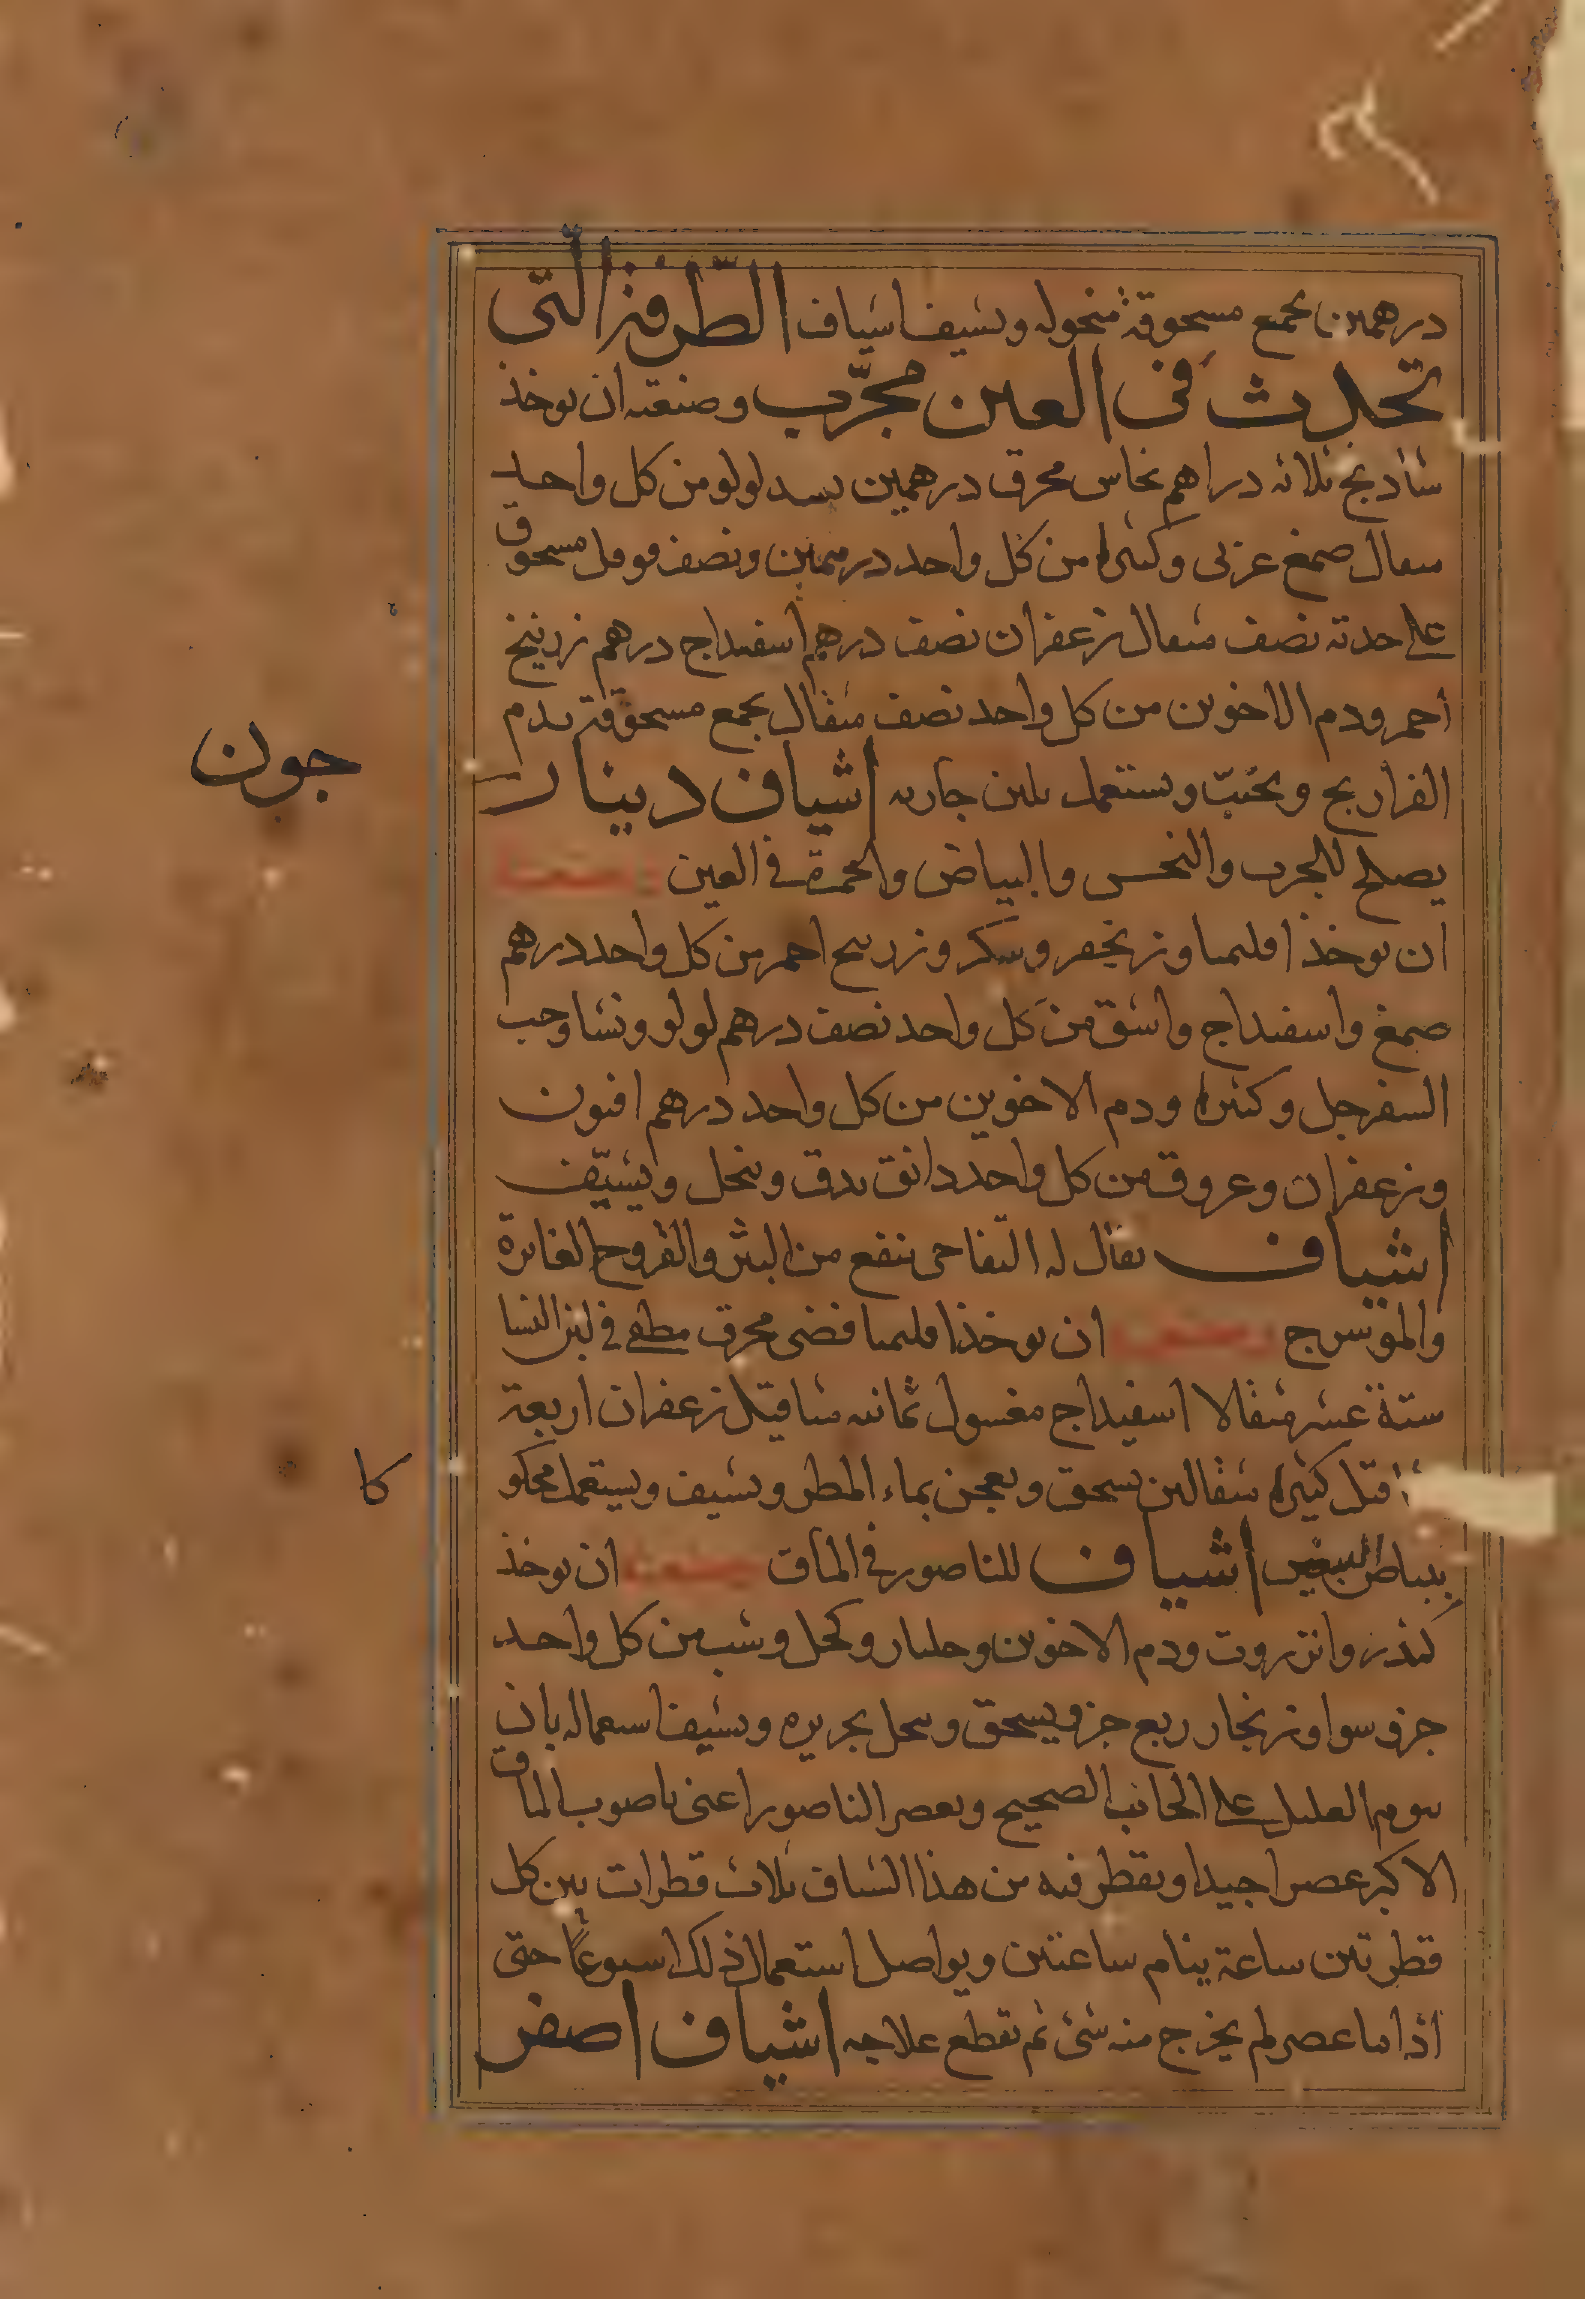 درهمين يجمع مسحوقه منخوله ويشيف اشياف الطرفة التى
تحدث فى العين مجرّب وصنعته ان يوخذ
شادنج ثلاثه دراهم نحاس محرق درهمين بسد لولو من كل واحد
مثقال صمغ عربى وكثيرا من كل واحد درهمين ونصف فوفل مسحوق
على حدته نصف مثقال زعفران نصف درهم اسفيداج درهم زرنيخ
احمر ودم الاخوين من كل واحد نصف مثقال يجمع مسحوقة بدم
الفراريج ويحبّب ويستعمل بلبن جاريه اشياف دينار
جون
يصلح للجرب والنحس والبياض والحمرة فى العين
ان يوخذ اقليميا وزنجفر وسكر وزرنيخ احمر من كل واحد درهم
صمغ واسفيداج واشق من كل واحد نصف درهم لولو ونشا وحب
السفرجل وكثيرا ودم الاخوين من كل واحد درهم افيون
وزعفران وعروق من كل واحد دانق يدق وينخل ويشيّف
اشياف يقال له التفاحى ينفع من البثر والقروح الغايرة
والموسرج ان يوخذ اقليميا فضى محرق مطفى فى لبن النسا
ستة عشر مثقالا اسفيداج مغسول ثمانيه مثاقيل زعفران اربعة
اقيل كثيرا مثقالين يسحق ويعجن بماء المطر ويشيف ويستعمل محكو
كا
ببياض البيض اشياف للناصور فى الماق ان يوخذ
كندر وانزروت ودم الاخوين وجلنار وكحل وشب من كل واحد
جزو سوا وزنجار ربع جزو يسحق وينخل بحريره ويشيف استعماله بان
ينوم العليل على الجانب الصحيح ويعصر الناصور اعنى ناصور الماق
الاكبر عصرا جيدا ويقطر فيه من هذا الشياف ثلاث قطرات بين كل
قطرتين ساعة ينام ساعتين ويواصل استعمال ذلك اسبوعًا حتى
اذا ما عصر لم يخرج منه شى ثم يقطع علاجه اشياف اصفر